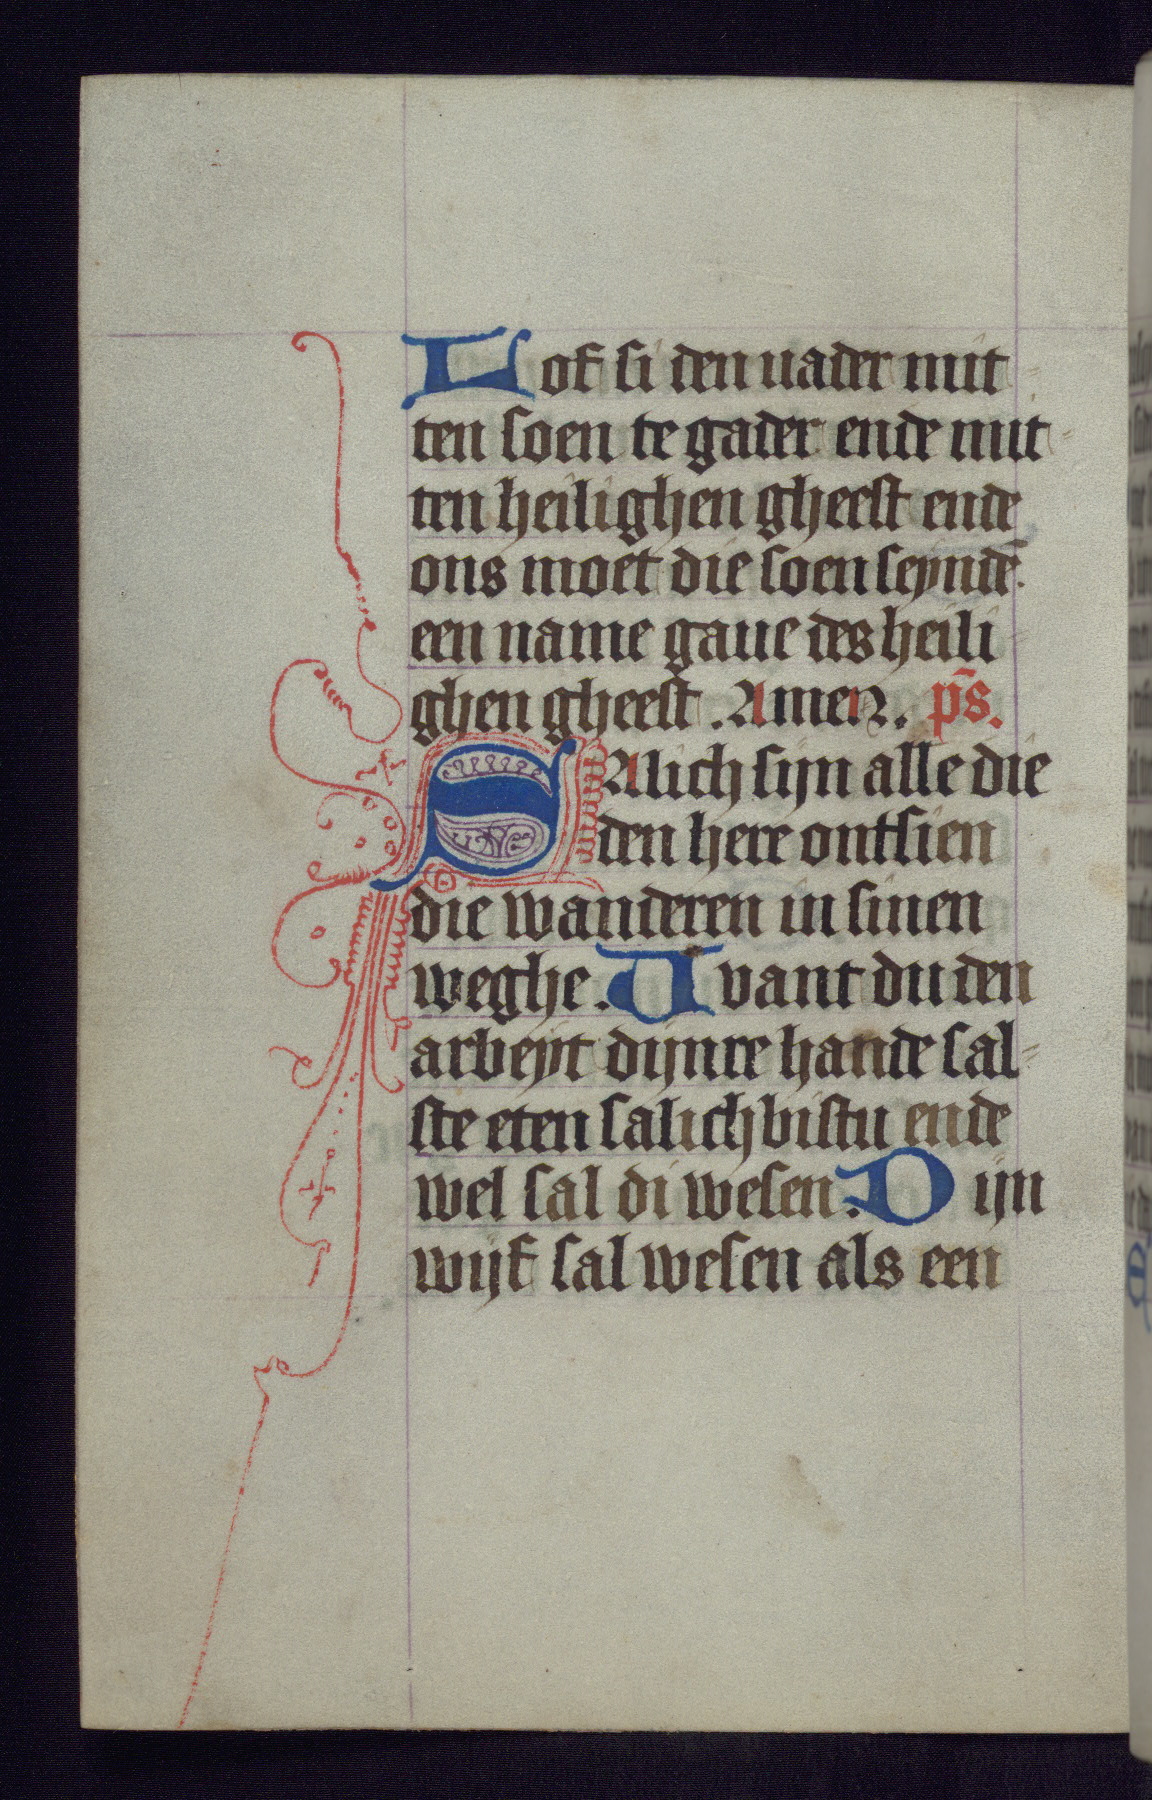 Lof si den uader mit
ten soen te gader ende mit
ten heilighen gheest ende
ons moet die soen seyndē.
een name gaue des heili
ghen gheest. Amen. ps̄.
SAlich sijn alle die
den here ontsien
die wanderen in sinen
weghe. Want du den
arbeyt dijnre hande sal
ste eten salich bistu ende
wel sal di wesen. Dijn
wijf sal wesen als een